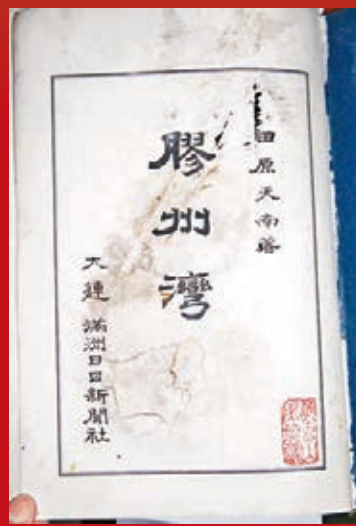 田原天南著
膠州灣
大連 滿洲日日新聞社